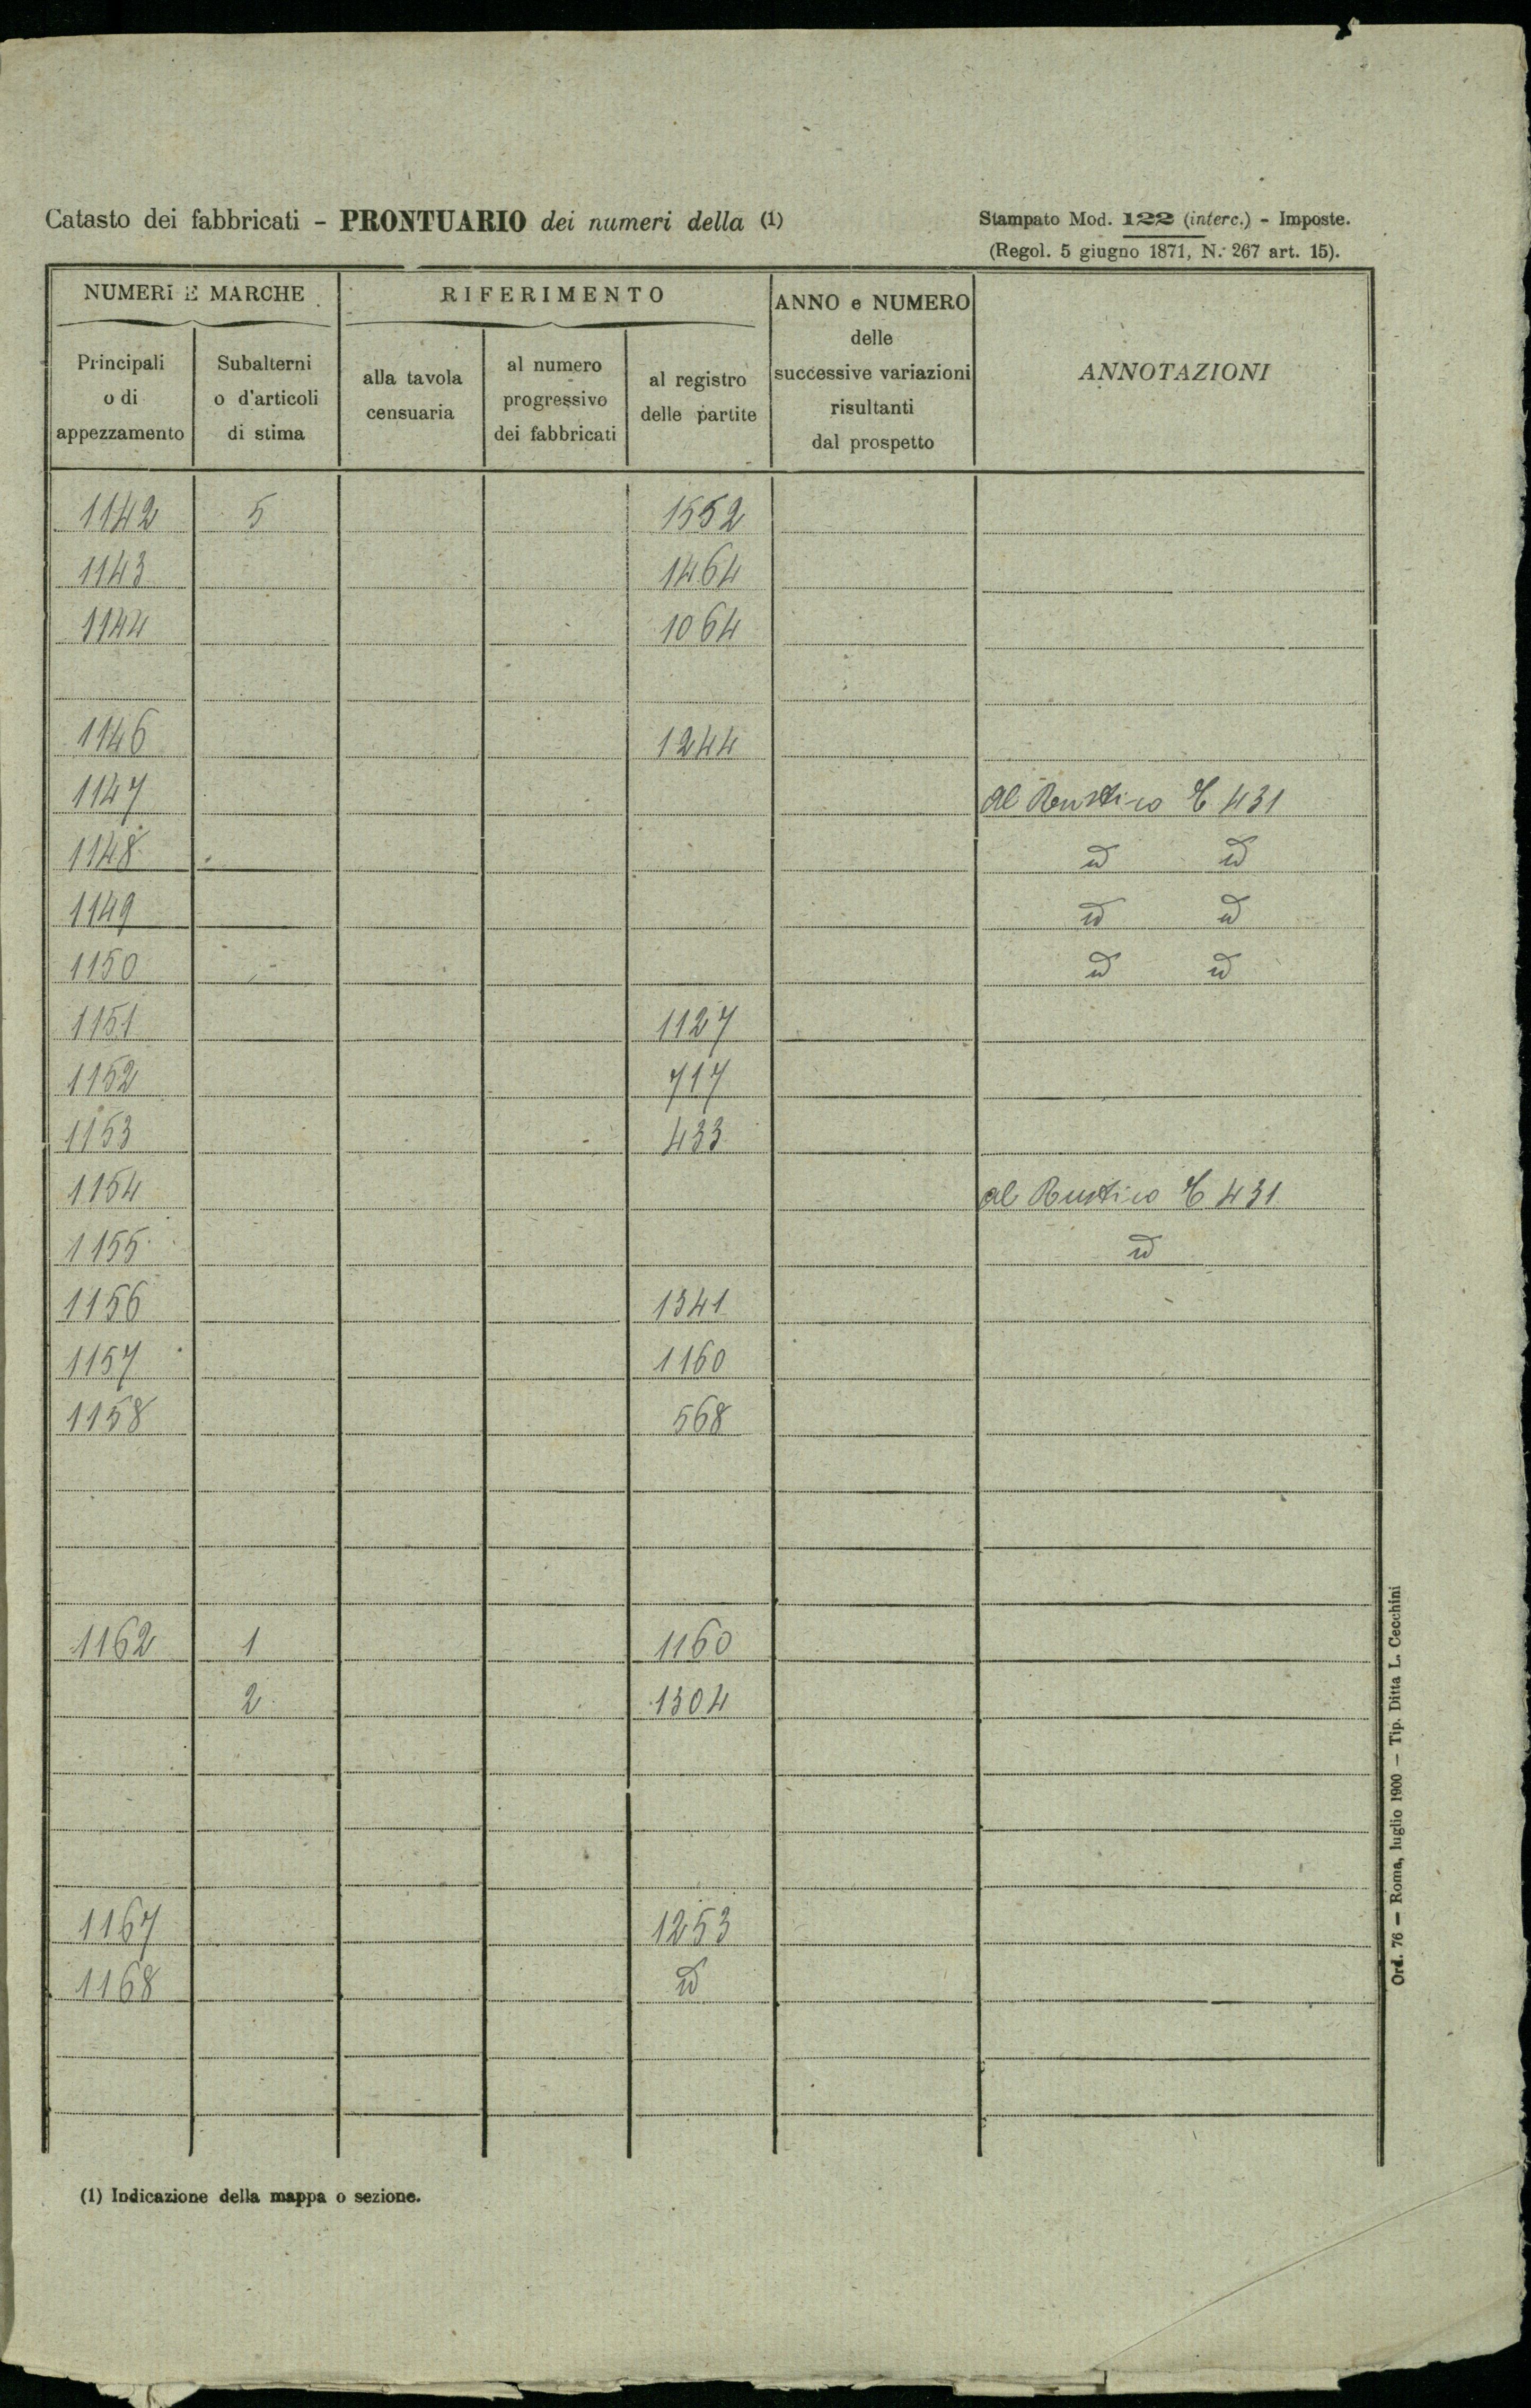 Catasto dei fabbricati - PRONTUARIO dei numeri della (1)
Stampato Mod. 122 (interc.) - Imposte.
(Regol. 5 giugno 1871, N. 267 art. 15).
NUMERI E MARCHE
RIFERIMENTO
ANNO e NUMERO
delle
successive variazioni
risultanti
dal prospetto
ANNOTAZIONI
Principali
o di
appezzamento
Subalterni
o d'articoli
di stima
alla tavola
censuaria
al numero
progressivo
dei fabbricati
al registro
delle partite
1142 5 1552
1143 1464
1144 1064
1146 1244
1147 al Rustico 431
1148 id id
1149 id id
1150 id id
1151 1127
1152 717
1153 433
1154 al Rustico 431
1155 id
1156 1341
1157 1160
1158 568
1162 1 1160
2 1304
1167 1253
1168 id
(1) Indicazione della mappa o sezione.
Ord. 76 — Roma, luglio 1900 — Tip. Ditta L. Cecchini